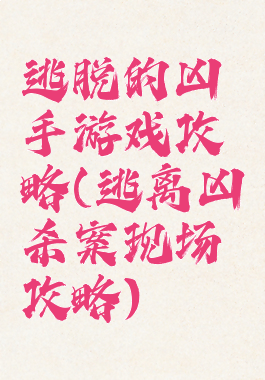 逃脱的凶
手游戏攻
略(逃离凶
杀案现场
攻略)